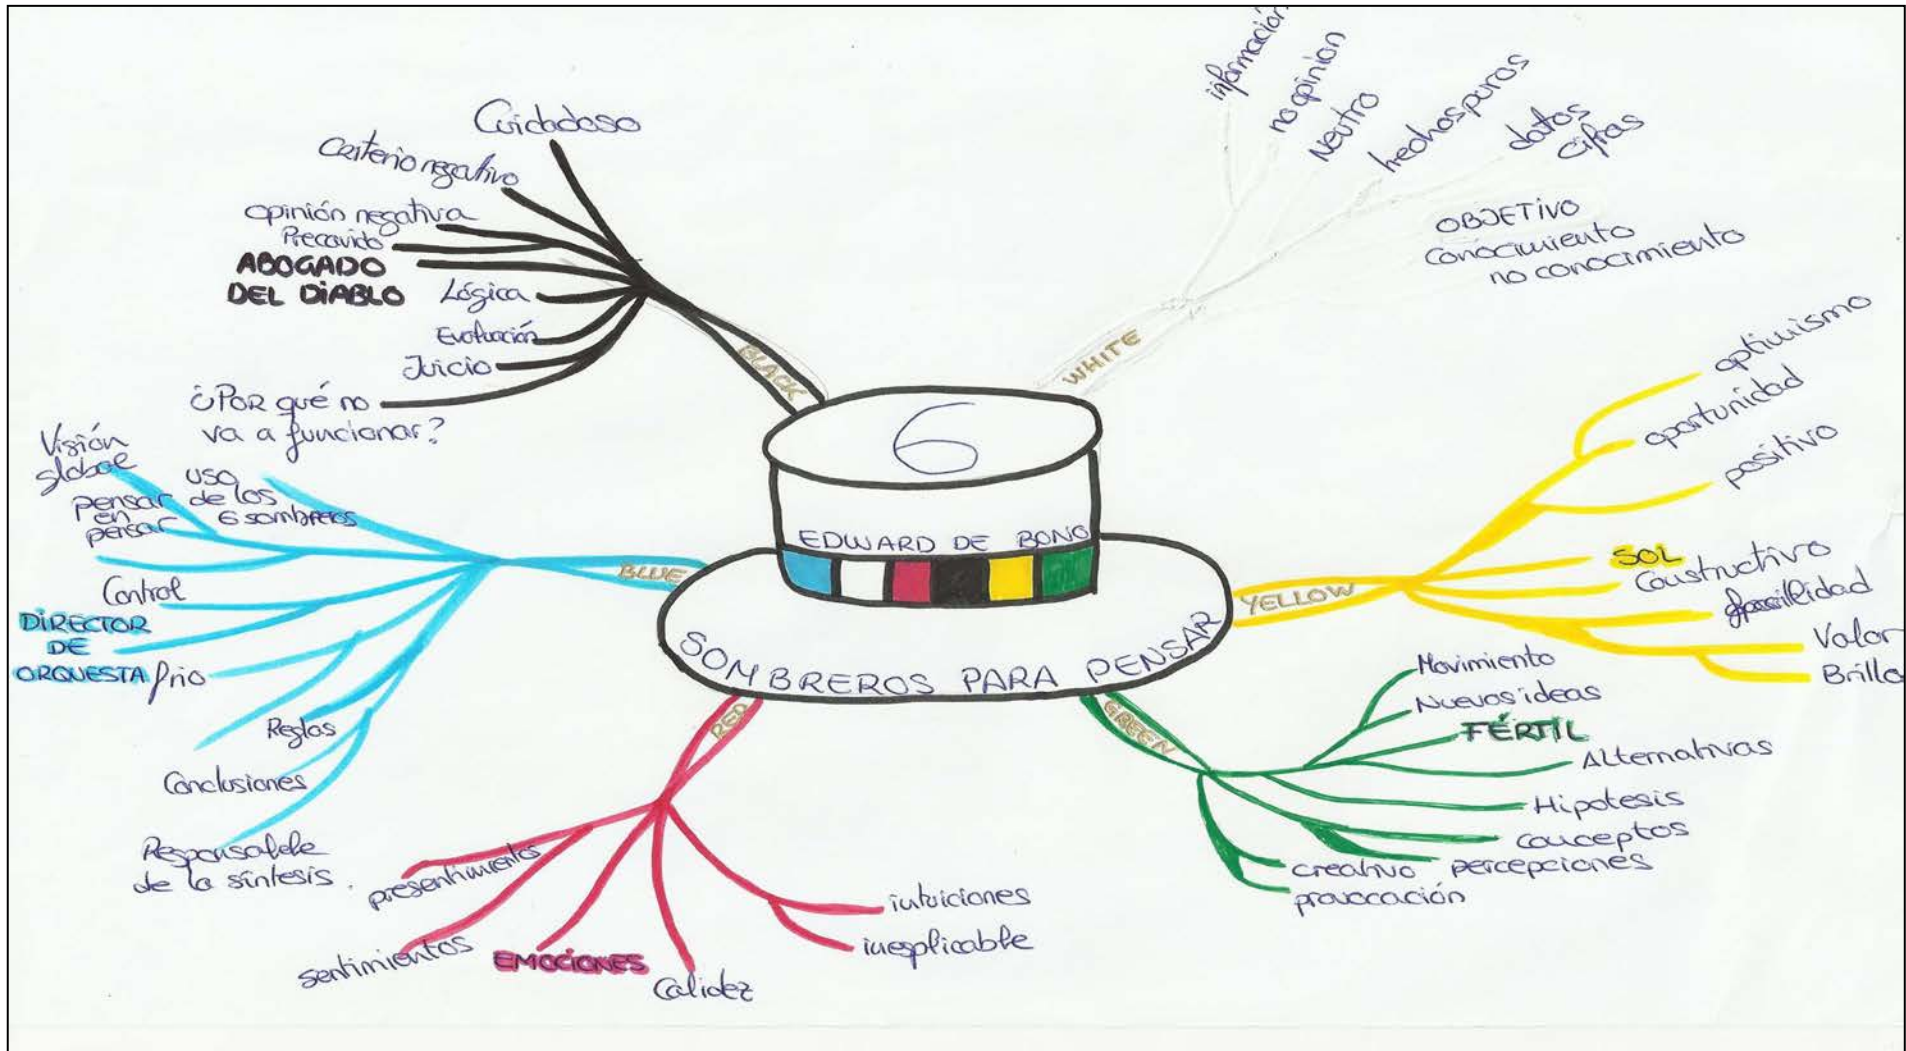 6
EDWARD DE BONO
SOMBREROS PARA PENSAR
BLACK
Cuidadoso
Criterio negativo
opinión negativa
Precavido
ABOGADO
DEL DIABLO
Lógica
Evaluación
Juicio
¿POR qué no
va a funcionar?
WHITE
información
no opinion
Neutro
hechos puros
datos
cifras
OBJETIVO
Conocimiento
no conocimiento
YELLOW
optimismo
oportunidad
positivo
SOL
Constructivo
Valor
Brillo
GREEN
Movimiento
Nuevas ideas
FÉRTIL
Alternativas
Hipotesis
conceptos
percepciones
creativo
provocación
RED
presentimientos
sentimientos
EMOCIONES
Calidez
intuiciones
inexplicable
BLUE
Visión
global
uso
de los
6 sombreros
pensar
en
pensar
Control
DIRECTOR
DE
ORQUESTA
frio
Reglas
Conclusiones
Responsable
de la síntesis.